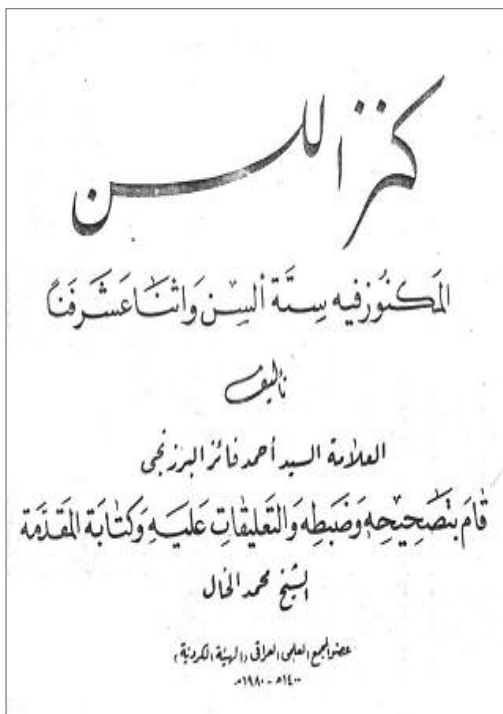 كنز اللسن
المكنوز فيه ستة ألسن واثنا عشر فنا
تأليف
العلامة السيد أحمد فائز البرزنجي
قام بتصحيحه وضبطه والتعليقات عليه وكتابة المقدمة
الشيخ محمد الخال
عضو المجمع العلمي العراقي «الهيئة الكردية»
١٤٠٠هـ - ١٩٨٠مـ